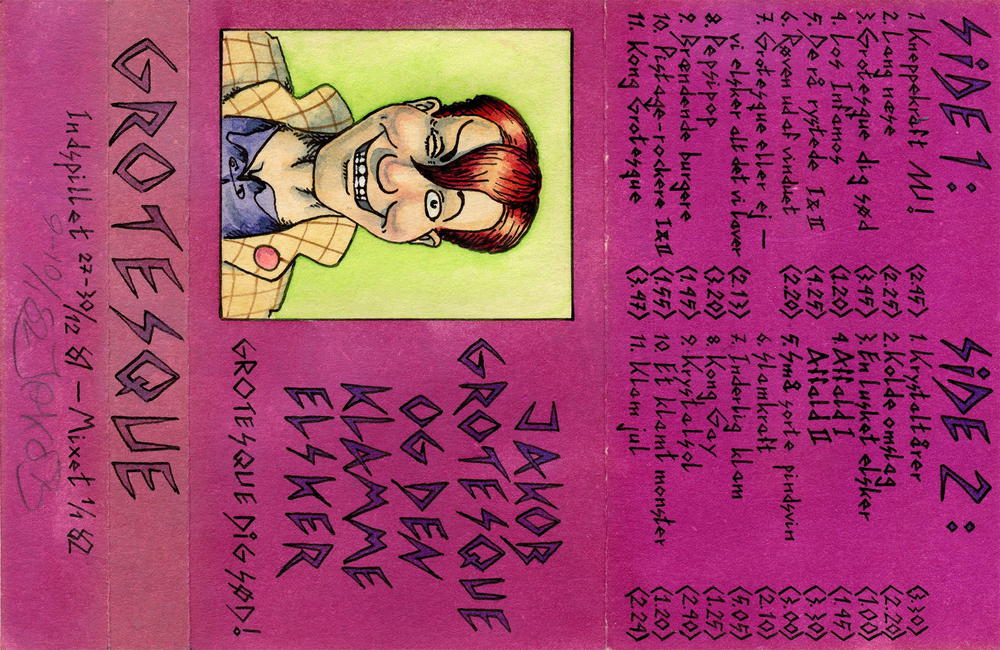 SIDE 1:
1. Kneppekrått NU! (2.45)
2. Lang næse (2.25)
3. Grotesque dig sød (3.45)
4. Los Infamos (1.20)
5. De rå rystede I & II (4.25)
6. Røven ud at vinduet (2.20)
7. Grotesque eller ej —
vi elsker alt det vi laver (2.13)
8. Pepsipop (3.20)
9. Brændende burgere (1.45)
10. Pistage-rockere I & II (1.55)
11. Kong Grotesque (3.47)
SIDE 2:
1. Krystaltårer (3.30)
2. Kolde omslag (2.20)
3. En lusket elsker (1.00)
4. Affald I (1.45)
Affald II (3.30)
5. Små sorte pindsvin (3.00)
6. Slamkraft (2.10)
7. Inderlig klam (5.05)
8. Kong Gay (1.25)
9. Krystalsol (2.40)
10. Et klamt monster (1.20)
11. Klam jul (2.24)
JAKOB
GROTESQUE
OG DEN
KLAMME
ELSKER
GROTESQUE DIG SØD!
GROTESQUE
Indspillet 27-30/12 81 — Mixet 1/1 82